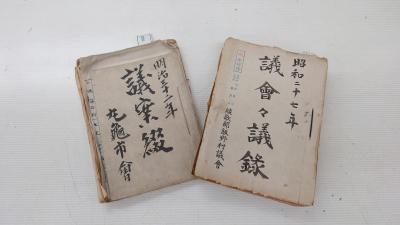 明治三十二年
議案綴
丸龜市會
昭和二十七年
議會々議錄
綾歌郡飯野村議會